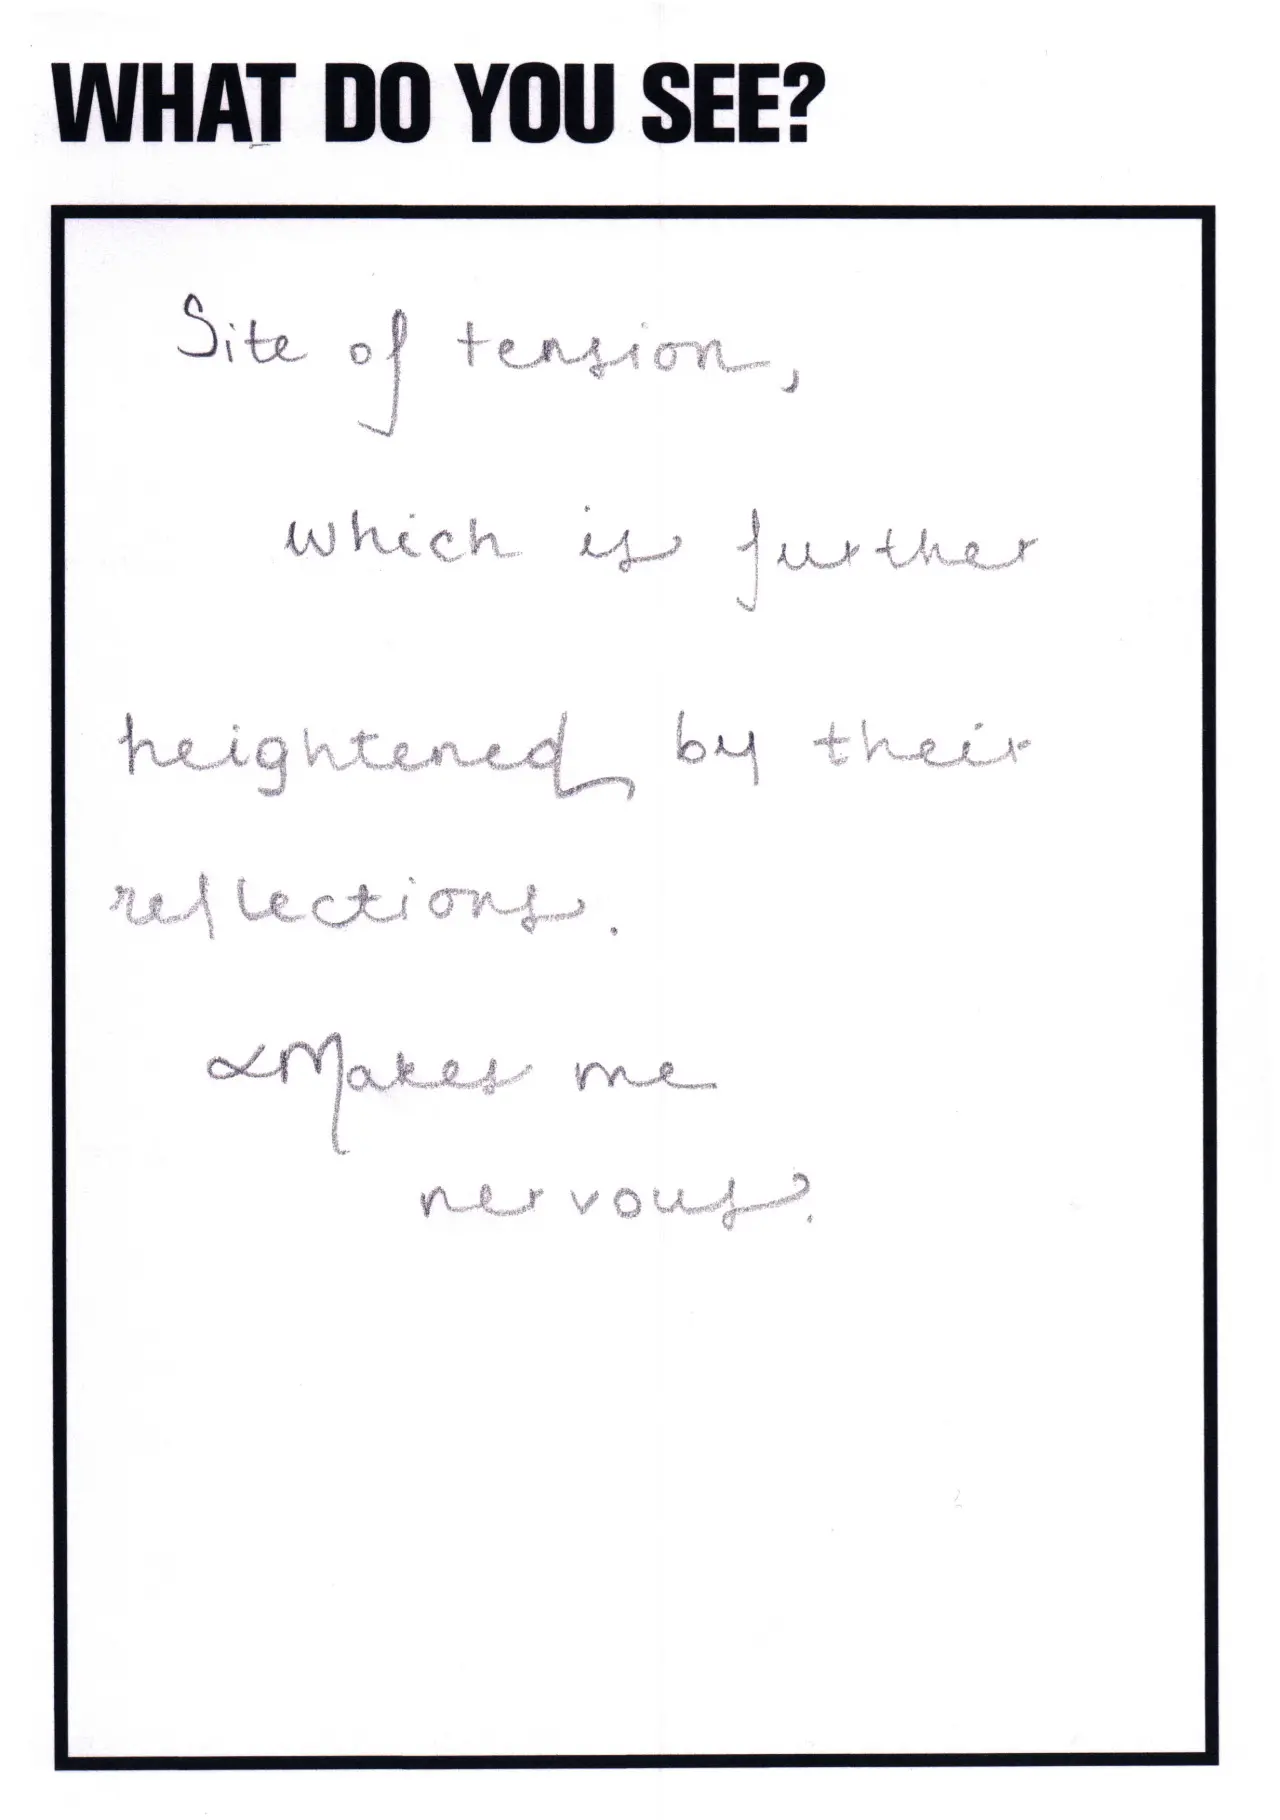 WHAT DO YOU SEE?
Site of tension,
which is further
heightened by their
reflections.
&Makes me
nervous.